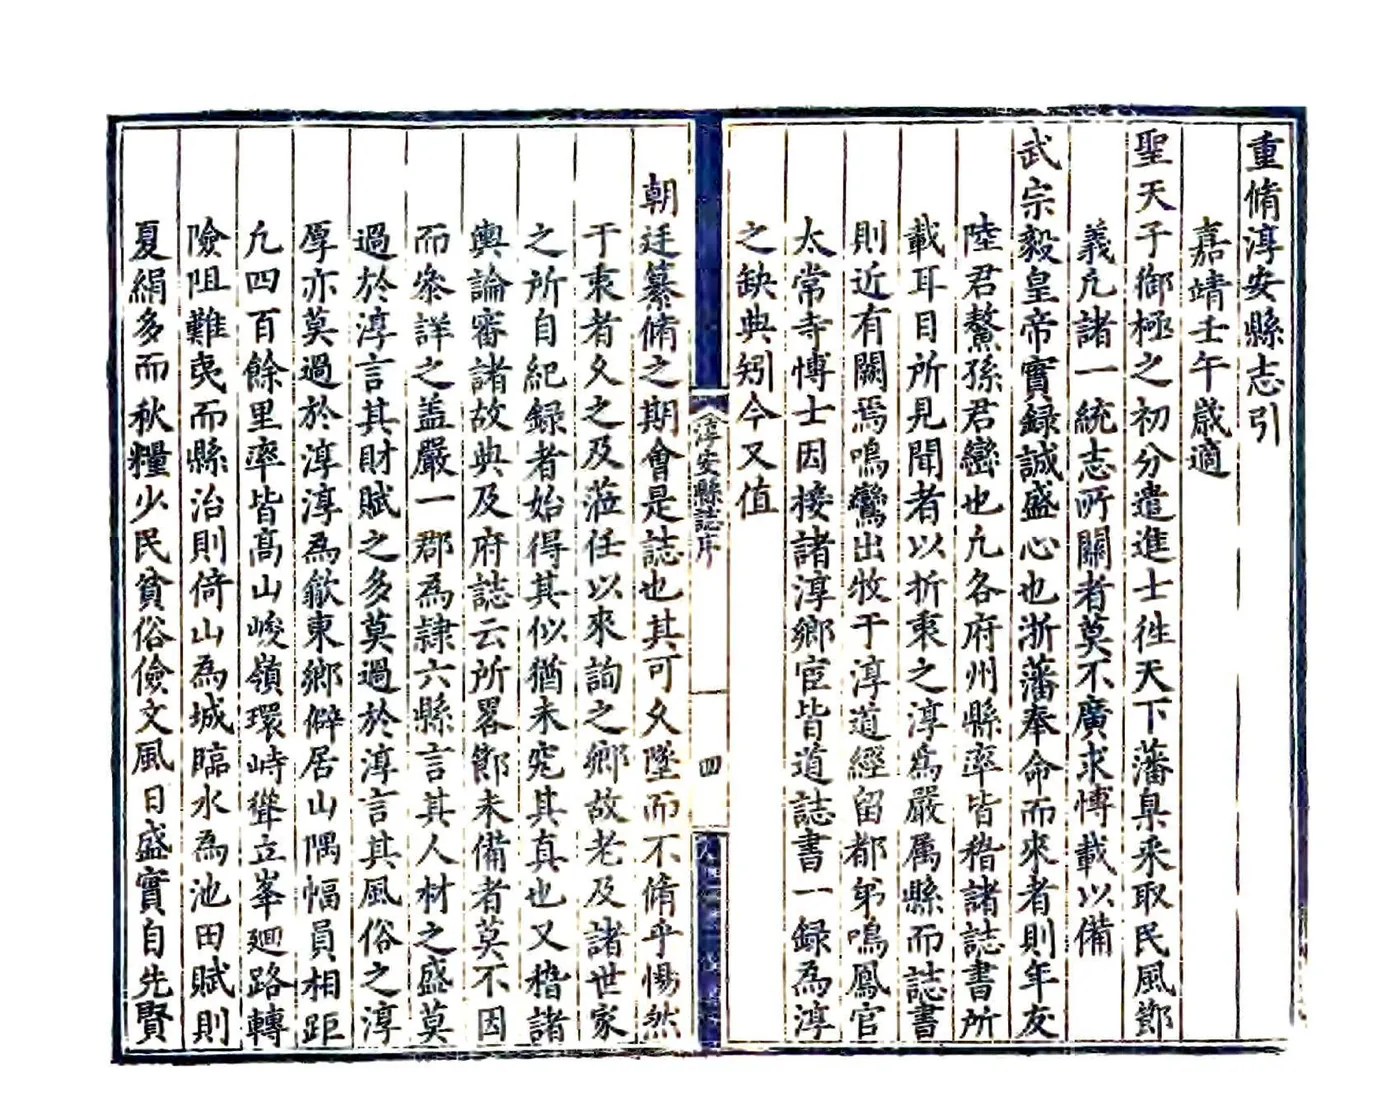 重脩淳安縣志引
嘉靖壬午歲適
聖天子御極之初分遣進士徃天下藩臬采取民風節
義凢諸一統志所關者莫不廣求愽載以備
武宗毅皇帝實録誠盛心也浙藩奉命而來者則年友
陸君鰲孫君巒也凢各府州縣率皆稽諸誌書所
載耳目所見聞者以折衷之淳為嚴属縣而誌書
則近有闕焉鳴鸞出牧于淳道經留都弟鳴鳳官
太常寺愽士因接諸淳鄉宦皆道誌書一録為淳
之缺典矧今又值
淳安縣誌序
四
朝廷纂脩之期會是誌也其可久墜而不脩乎惕然
于衷者久之及蒞任以來詢之鄉故老及諸世家
之所自紀録者始得其似猶未究其真也又稽諸
輿論審諸故典及府誌云所畧節未備者莫不因
而叅詳之盖嚴一郡為隷六縣言其人材之盛莫
過於淳言其財賦之多莫過於淳言其風俗之淳
厚亦莫過於淳淳為歙東鄉僻居山隅幅員相距
凢四百餘里率皆髙山峻嶺環峙聳立峯廻路轉
險阻難夷而縣治則倚山為城臨水為池田賦則
夏絹多而秋糧少民貧俗儉文風日盛實自先賢